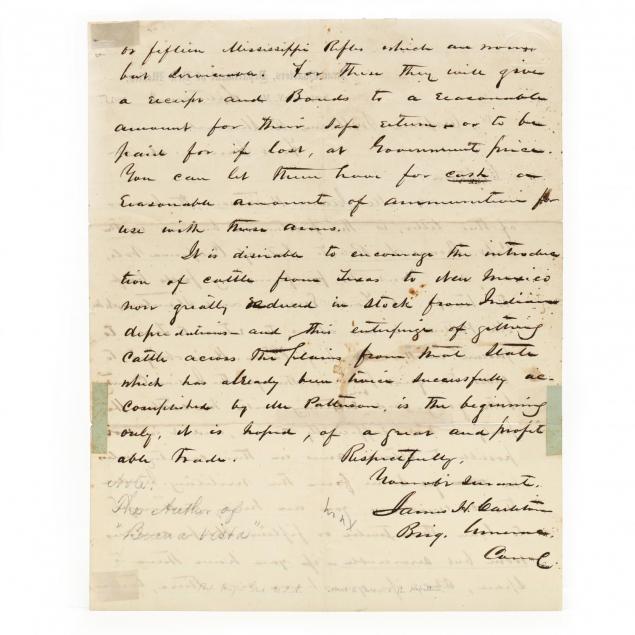 or fifteen Mississippi Rifles which are worn
but serviceable. For these they will give
a receipt and Bonds to a reasonable
amount for their safe return or to be
paid for if lost, at Government price.
You can let them have for cash a
reasonable amount of ammunition for
use with these arms.
It is desirable to encourage the introduc
tion of cattle from Texas to New Mexico
now greatly reduced in stock from Indian
depredations and this enterprize of getting
cattle across the plains from that State
which has already been twice successfully ac-
complished by Mr Patterson, is the beginning
only, it is hoped, of a great and profit
able trade.
Respectfully,
Your obt servant.
James H. Carleton
Brig. General
Note.
The Author of
"Buena Vista"